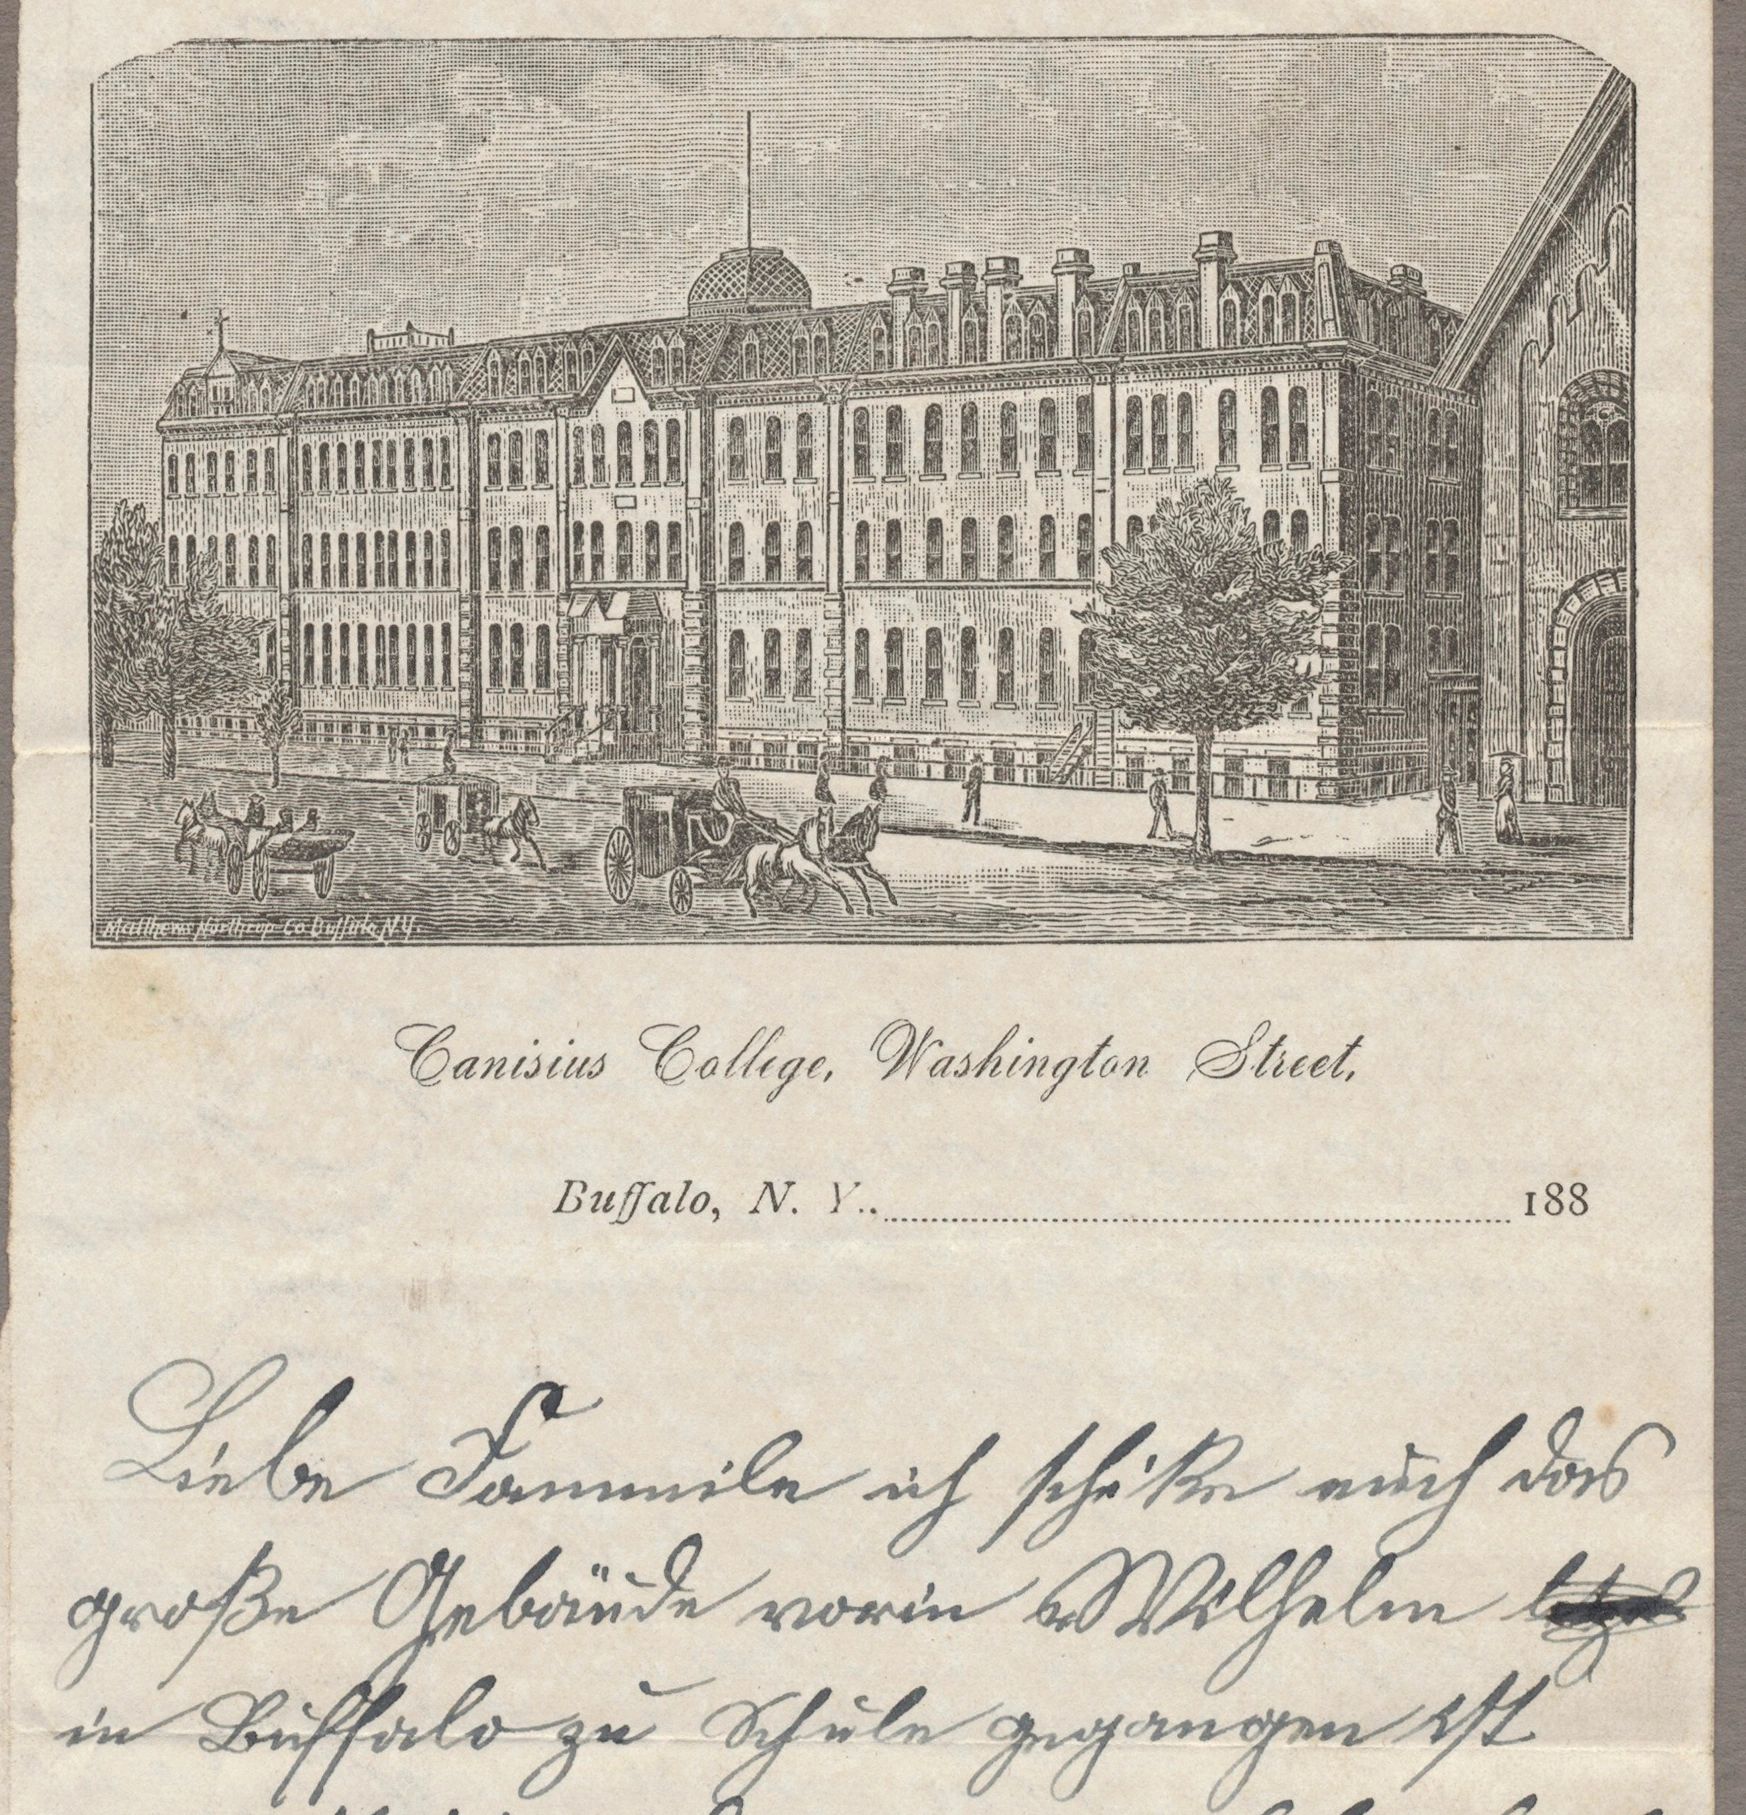 Matthews Northrup Co Buffalo, N.Y.
Canisius College, Washington Street,
Buffalo, N. Y. 188
Liebe Fammile ich schike euch das
große Gebäude worin Wilhelm
in Buffalo zu Schule gegangen ist